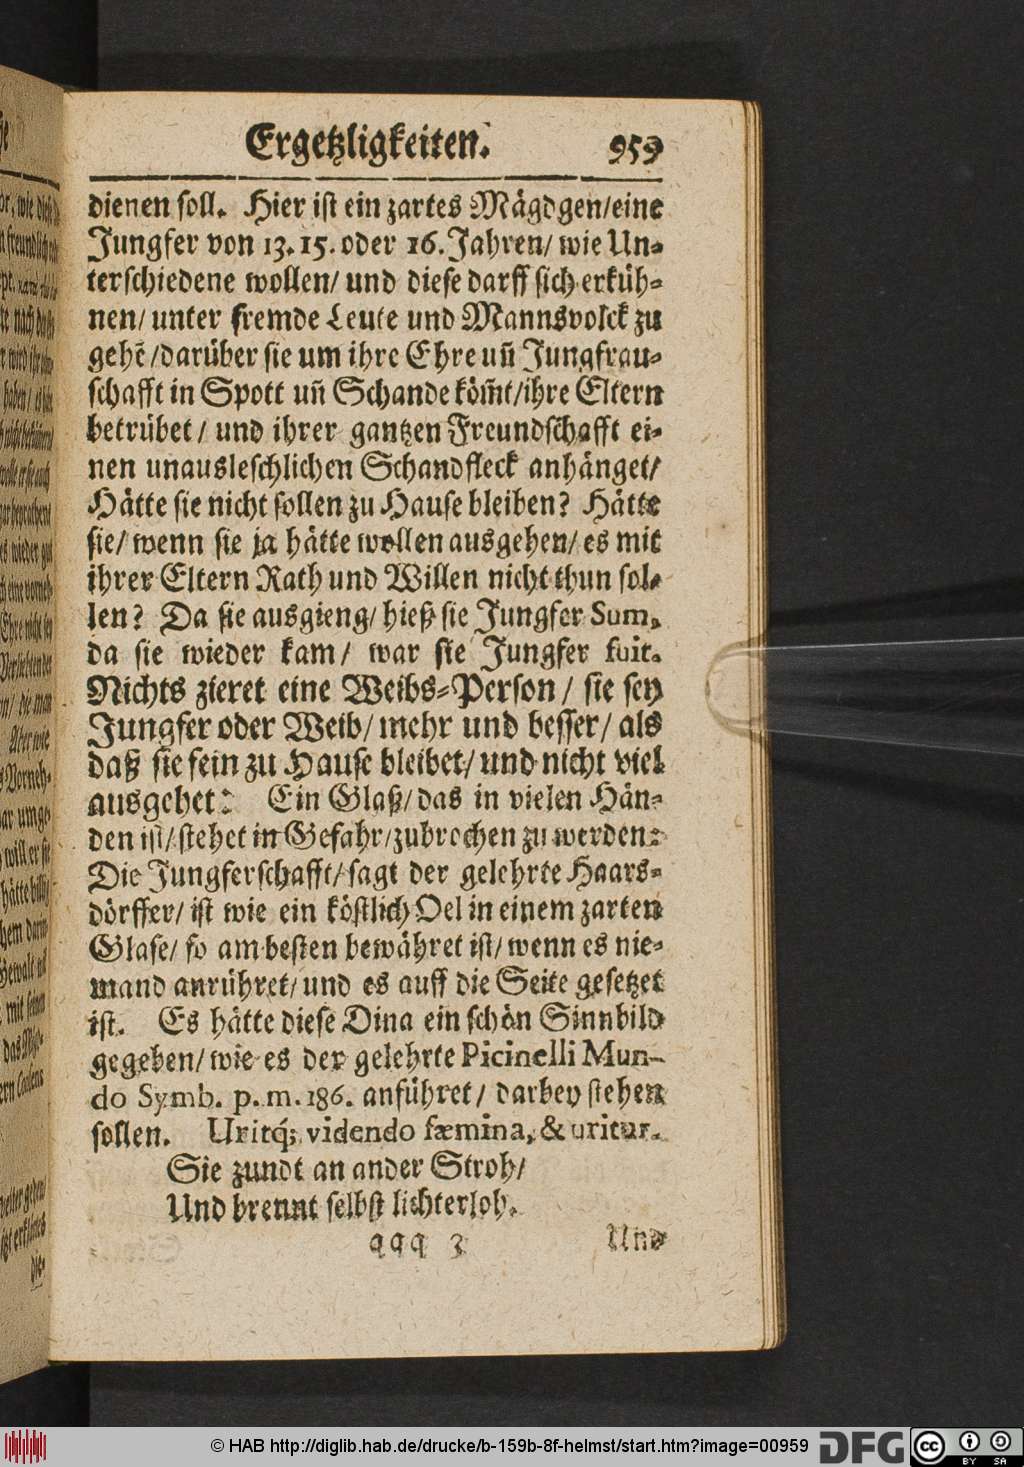 Ergetzligkeiten. 959
dienen soll. Hier ist ein zartes Mägdgen/eine
Jungfer von 13. 15. oder 16. Jahren/ wie Un-
terschiedene wollen/ und diese darff sich erküh-
nen/ unter fremde Leute und Mannsvolck zu
gehē/darüber sie um ihre Ehre uñ Jungfrau-
schafft in Spott uñ Schande köm̃t/ihre Eltern
betrübet/ und ihrer gantzen Freundschafft ei-
nen unausleschlichen Schandfleck anhänget/
Hätte sie nicht sollen zu Hause bleiben? Hätte
sie/ wenn sie ja hätte wollen ausgehen/ es mit
ihrer Eltern Rath und Willen nicht thun sol-
len? Da sie ausgieng/ hieß sie Jungfer Sum,
da sie wieder kam/ war sie Jungfer fuit.
Nichts zieret eine Weibs-Person/ sie sey
Jungfer oder Weib/ mehr und besser/ als
daß sie fein zu Hause bleibet/ und nicht viel
ausgehet: Ein Glaß/ das in vielen Hän-
den ist/ stehet in Gefahr/zubrochen zu werden:
Die Jungferschafft/ sagt der gelehrte Haars-
dörffer/ ist wie ein köstlich Oel in einem zarten
Glase/ so am besten bewähret ist/ wenn es nie-
mand anrühret/ und es auff die Seite gesetzet
ist. Es hätte diese Dina ein schön Sinnbild
gegeben/ wie es der gelehrte Picinelli Mun-
do Symb. p. m. 186. anführet/ darbey stehen
sollen. Uritq́; videndo fæmina, & uritur.
Sie zundt an ander Stroh/
Und brennt selbst lichterloh.
qqq 3 Und
© HAB http://diglib.hab.de/drucke/b-159b-8f-helmst/start.htm?image=00959 DFG cc BY SA